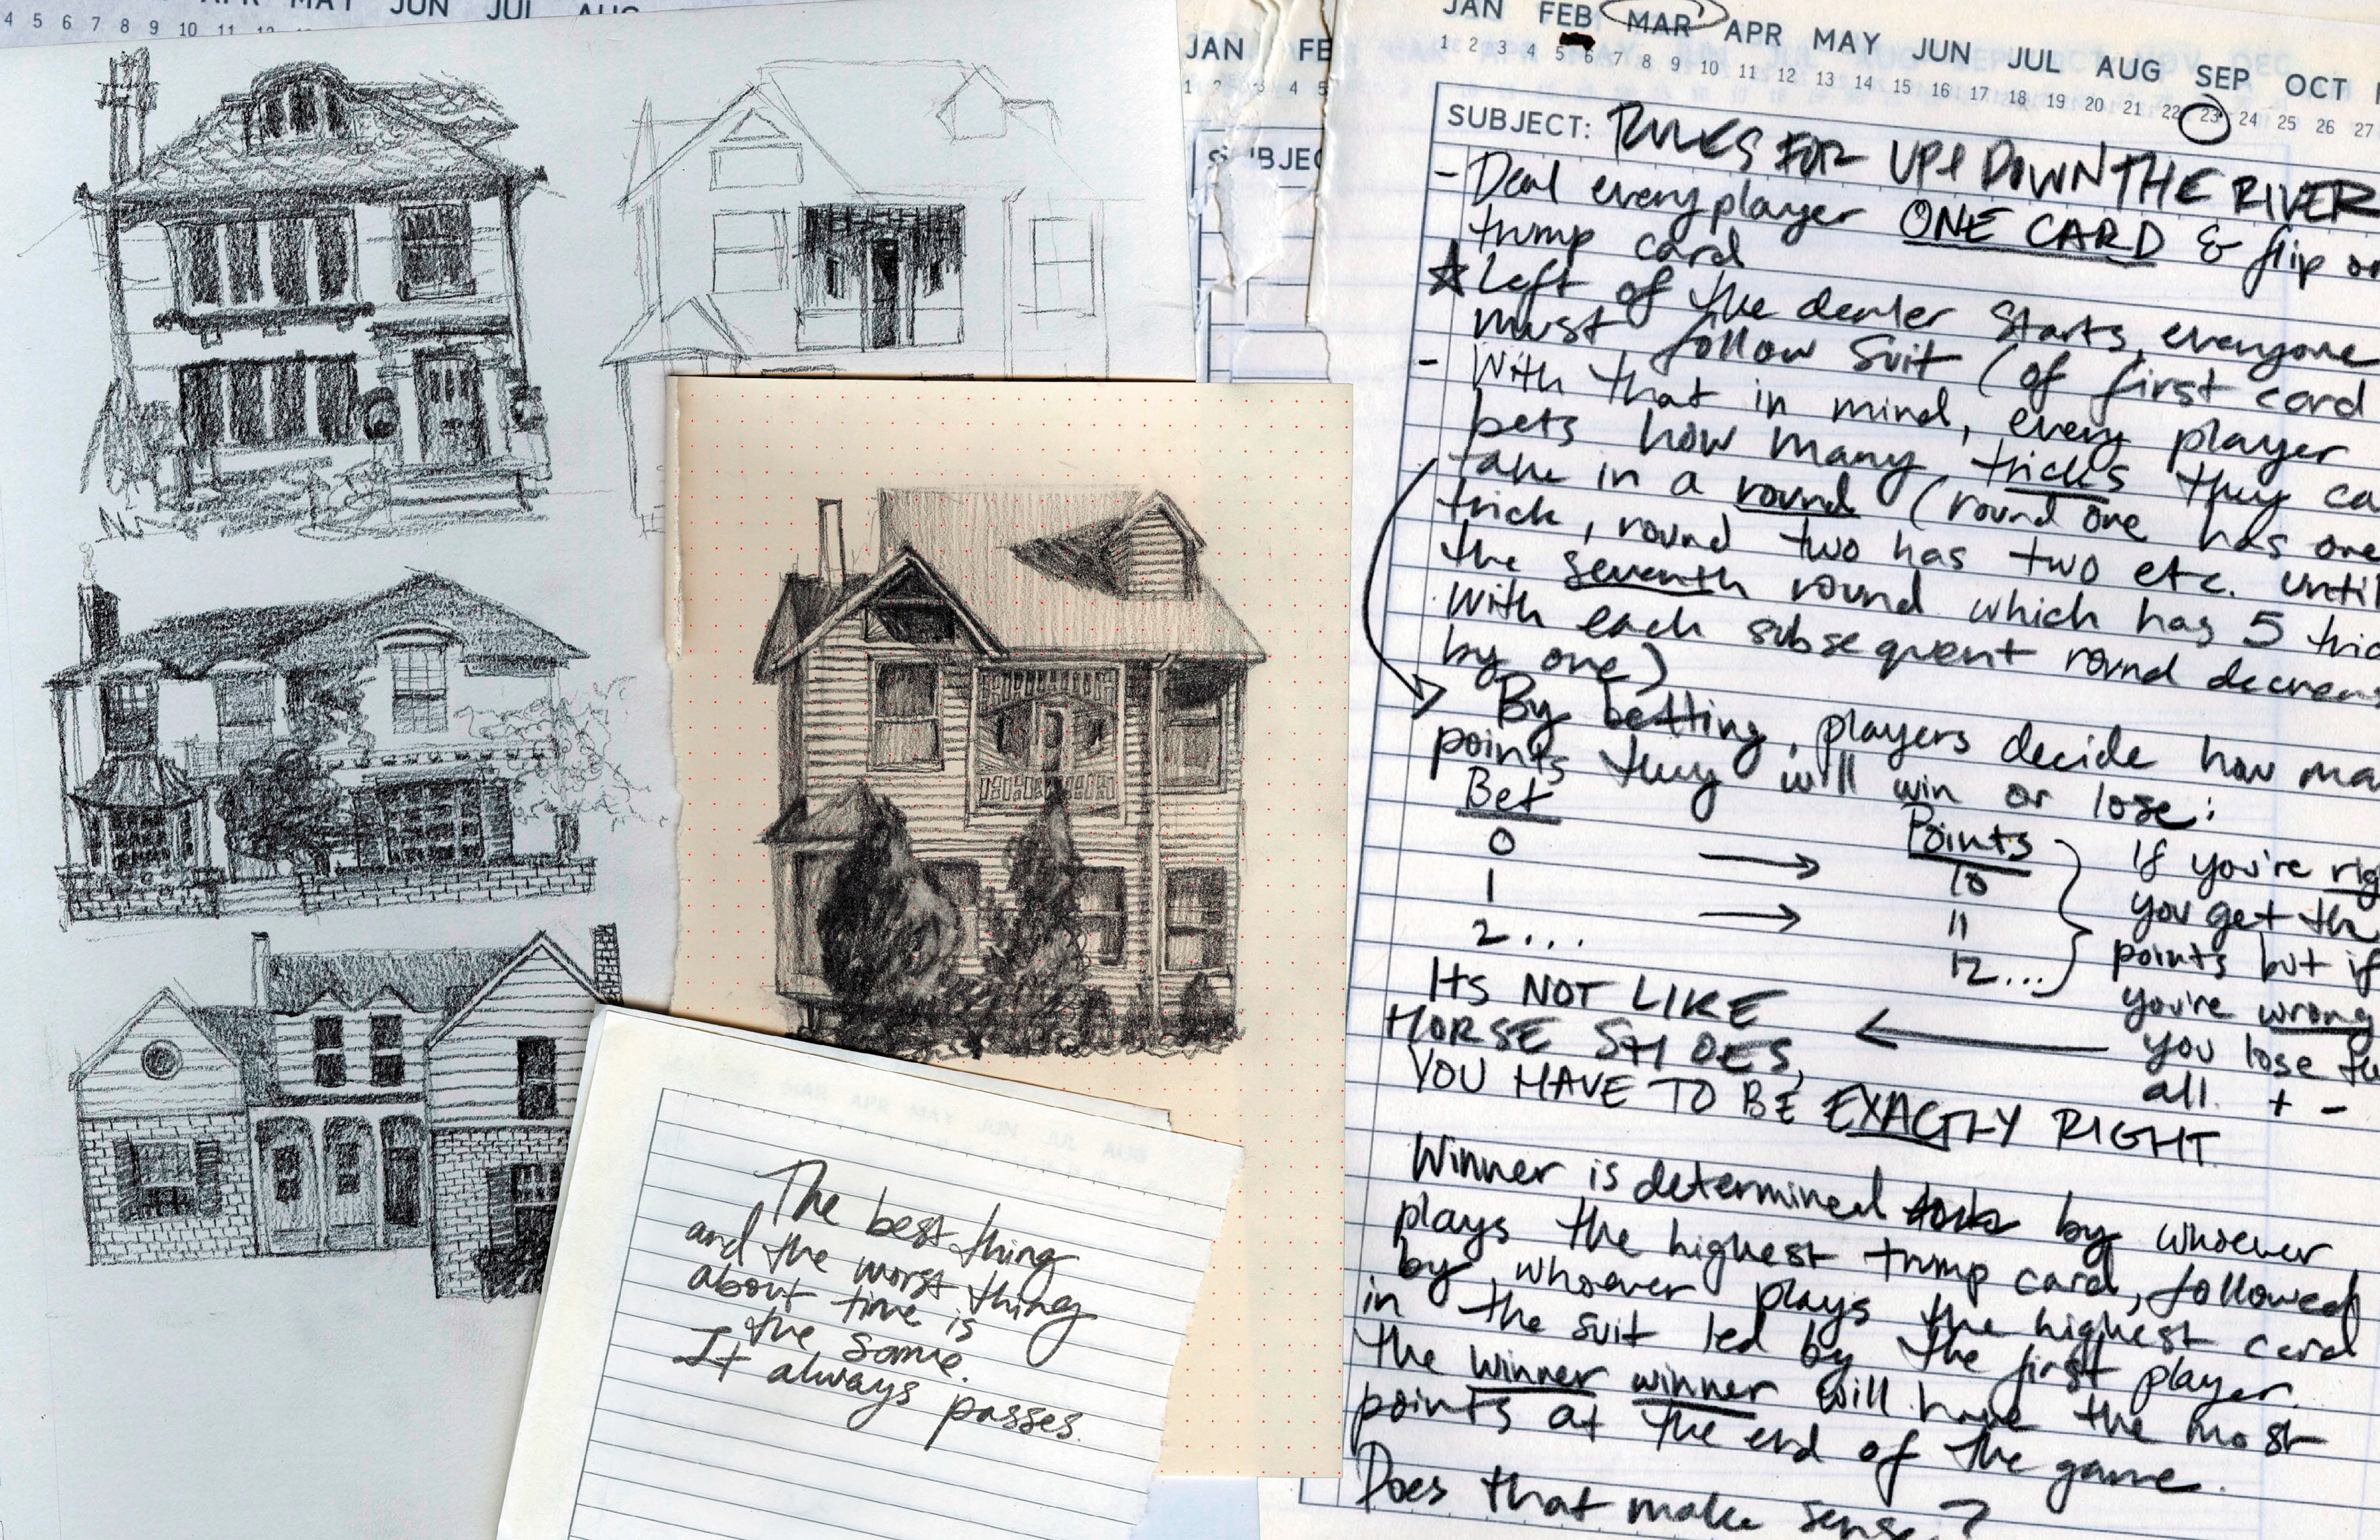 APR MAY JUN JUL AUG
4 5 6 7 8 9 10 11 12
JAN FE
1 2 3 4 5
SUBJEC
JAN FEB MAR APR MAY JUN JUL AUG SEP OCT
1 2 3 4 5 6 7 8 9 10 11 12 13 14 15 16 17 18 19 20 21 22 23 24 25 26 27
SUBJECT: RULES FOR UP & DOWN THE RIVER
- Deal every player ONE CARD & flip
trump card
☆ Left of the dealer starts, everyone
must follow suit (of first card
- With that in mind, every player
bets how many tricks they ca
take in a round (round one has one
trick, round two has two etc. until
the seventh round which has 5 tric
With each subsequent round decreas
by one)
By betting, players decide how ma
points they will win or lose:
Bet Points
0 → 10
1 → 11
2... 12...
If you're rig
you get th
points but if
you're wrong
you lose th
all. + -
ITS NOT LIKE
HORSE SHOES,
YOU HAVE TO BE EXACTLY RIGHT
Winner is determined by whoever
plays the highest trump card, followed
by whoever plays the highest card
in the suit led by the first player.
the winner winner will have the most
points at the end of the game.
Does that make sense?
The best thing
and the worst thing
about time is
the same.
It always passes.